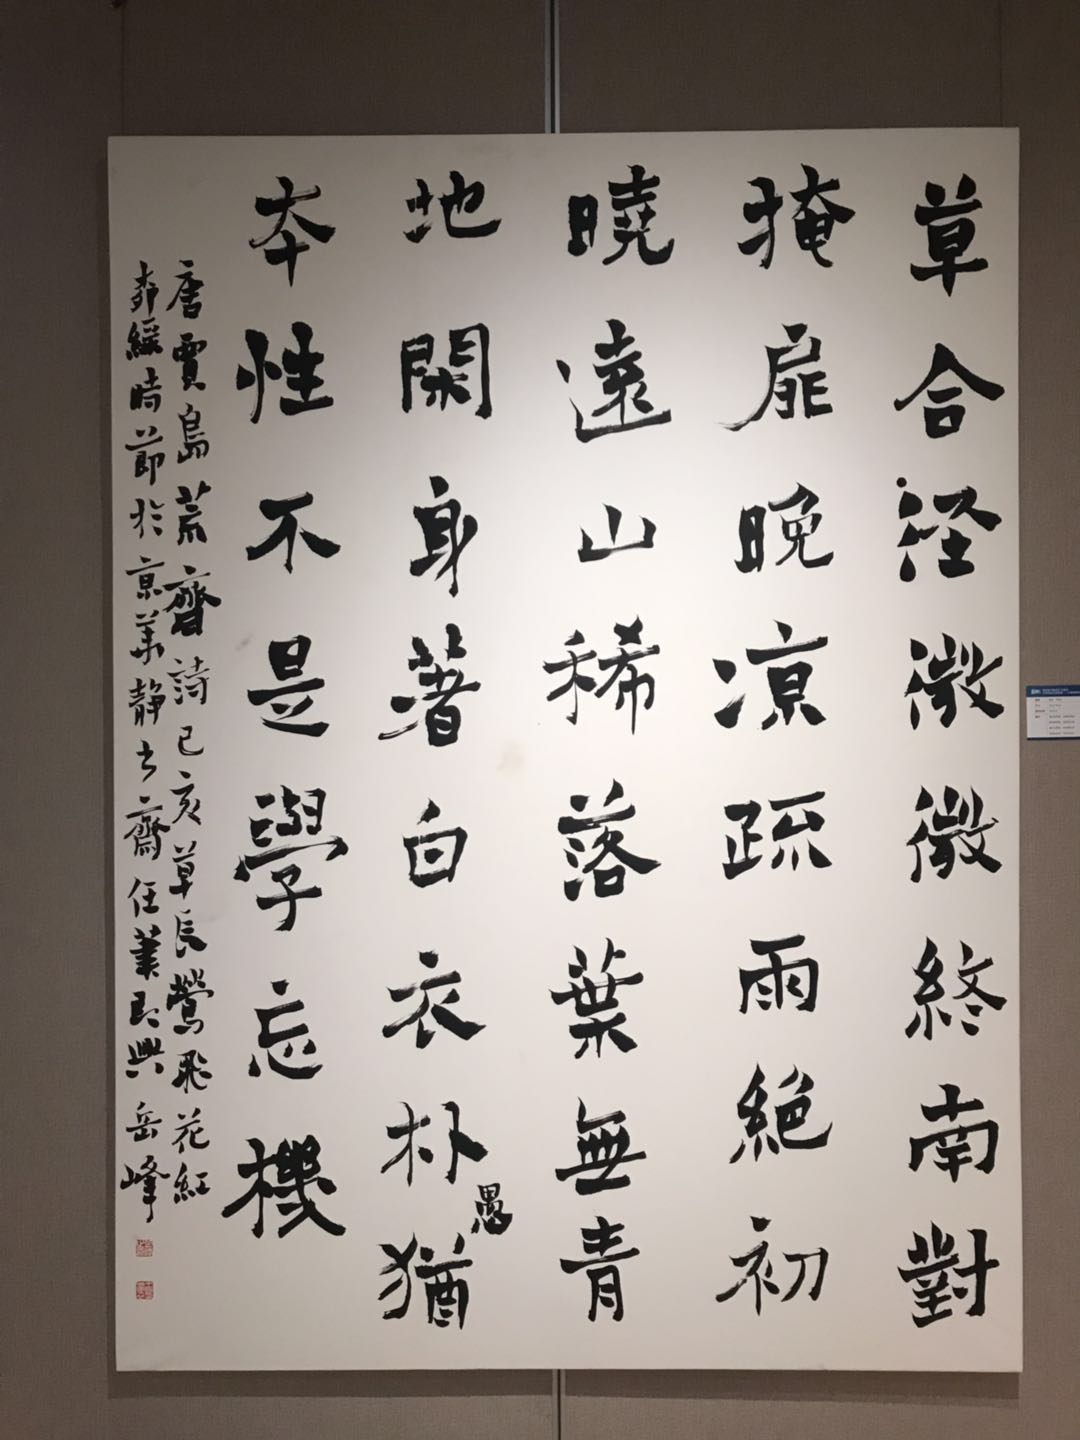 草合徑微微終南對
掩扉晚涼疏雨絕初
曉遠山稀落葉無青
地閑身著白衣朴猶
愚
本性不是學忘機
唐賈島荒齋詩己亥草長鶯飛花紅
柳緩時節於京華靜心齋任筆即興岳峰